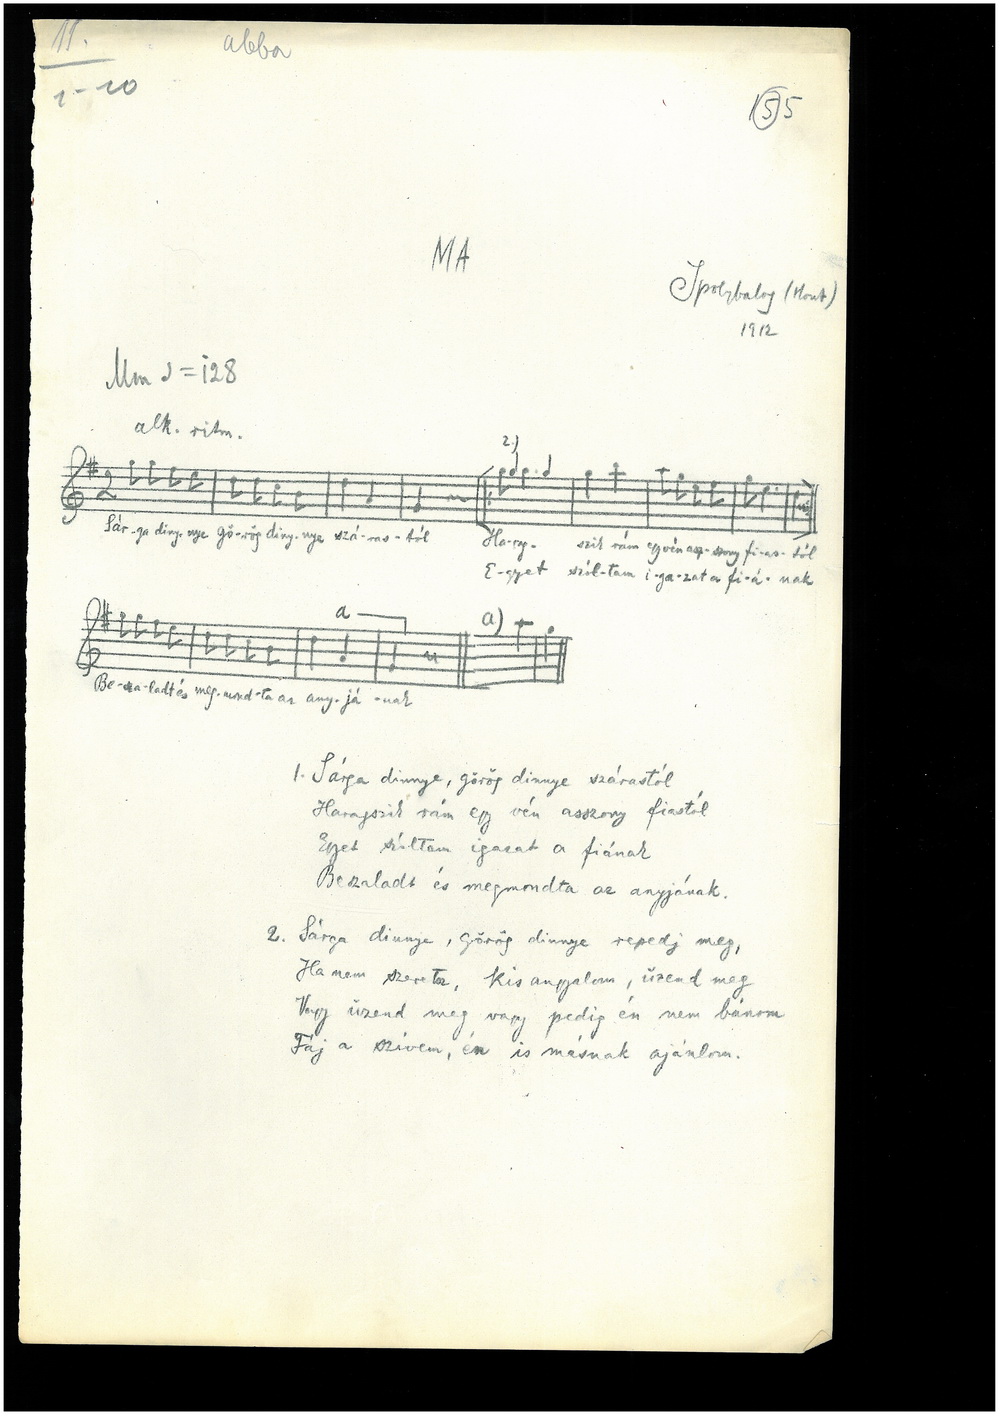 11.
1-10
abba
155
MA
Ipolybalog (Hont)
1912
Mm = 128
alk. ritm.
2.)
Sár-ga diny-nye gö-rög diny-nye szá-ras-tól Ha-rag- szik rám egy vén asz-szony fi-as-tól
E-gyet szól-tam i-ga-zat a fi-á-nak
a a)
Be-sza-ladt és meg-mond-ta az any-já-nak
1. Sárga dinnye, görög dinnye szárastól
Haragszik rám egy vén asszony fiastól
Egyet szóltam igazat a fiának
Beszaladt és megmondta az anyjának.
2. Sárga dinnye, görög dinnye repedj meg,
Ha nem szeretsz, kis angyalom, üzend meg
Vagy üzend meg vagy pedig én nem bánom
Fáj a szívem, én is másnak ajánlom.